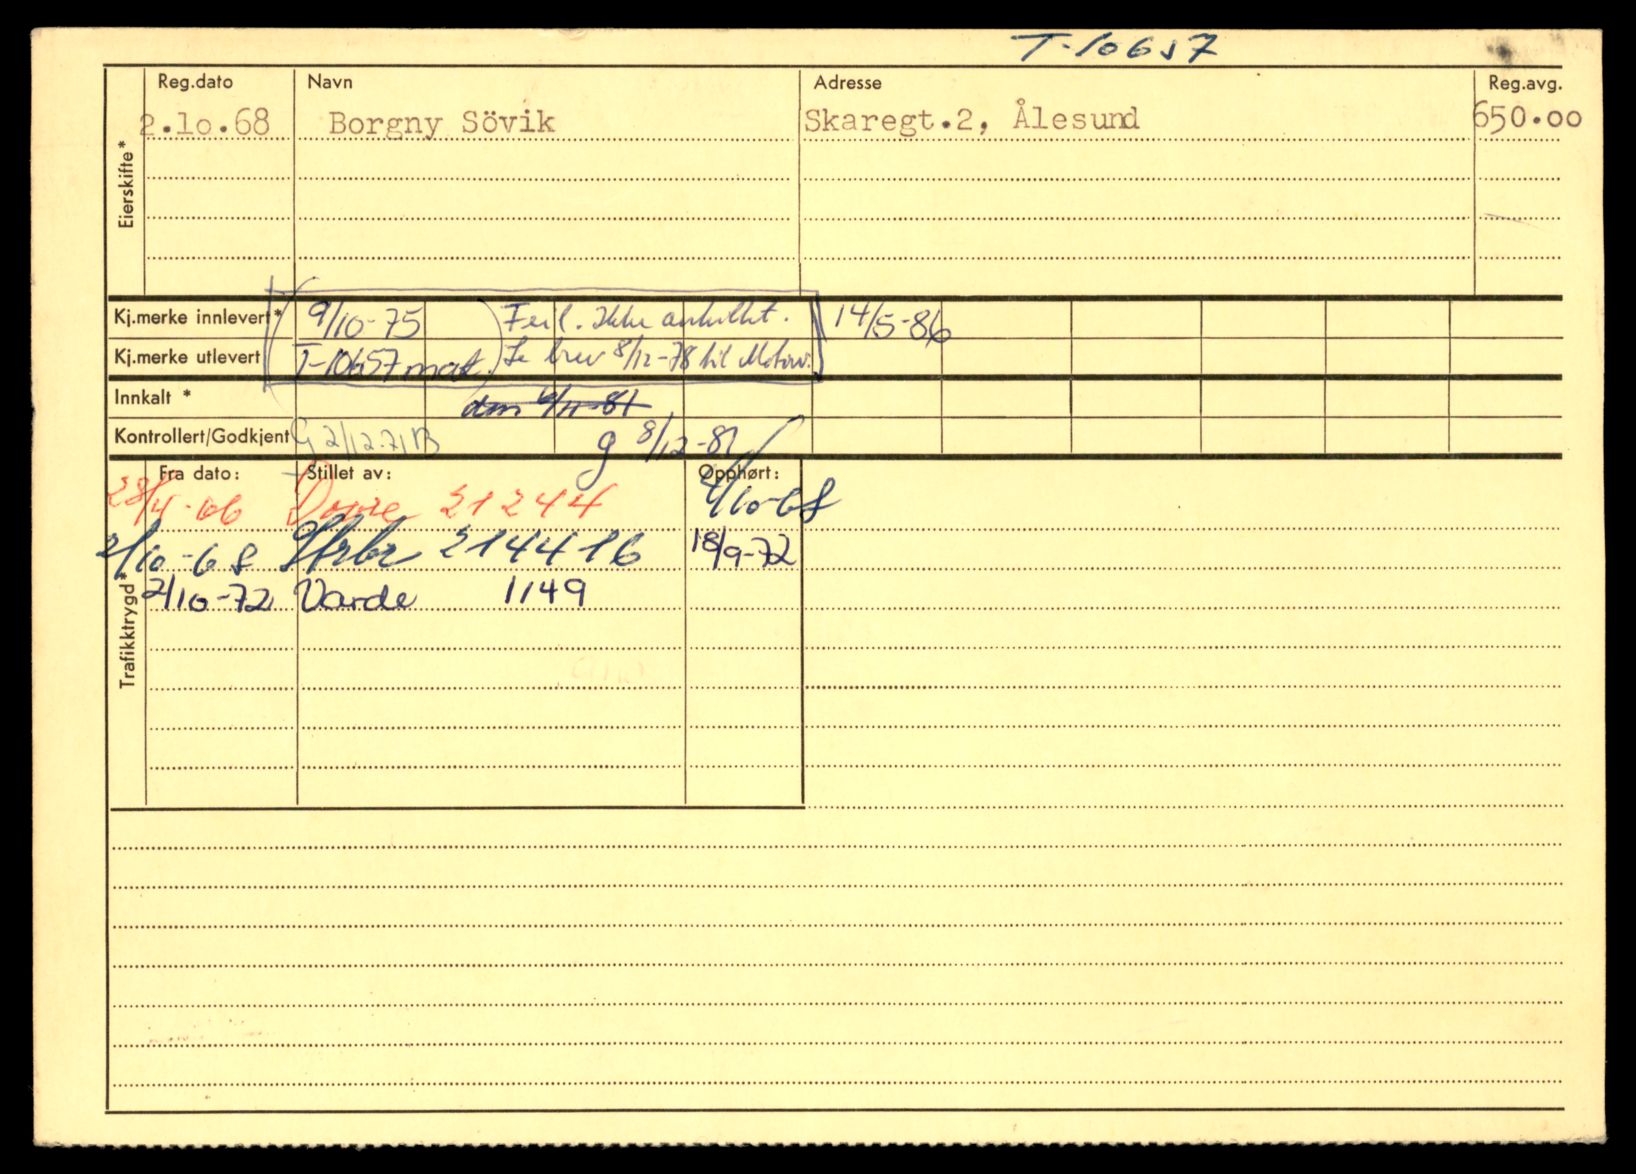 T-10657
Reg.dato Navn Adresse Reg.avg.
2.10.68 Borgny Sövik Skaregt.2, Ålesund 650.00
Eierskifte*
Kj.merke innlevert* 9/10-75 Feil. Ikke avskiltet. 14/5-86
Kj.merke utlevert T-10657 mat. Se brev 8/12-78 til Motorv.
Innkalt * den 6/11-81
Kontrollert/Godkjent G 2/12-71 B g 8/12-81
Fra dato: Stillet av: Opphørt:
28/4-66 21244 2/10-68
2/10-68 214416 18/9-72
2/10-72 Varde 1149
Trafikktrygd*